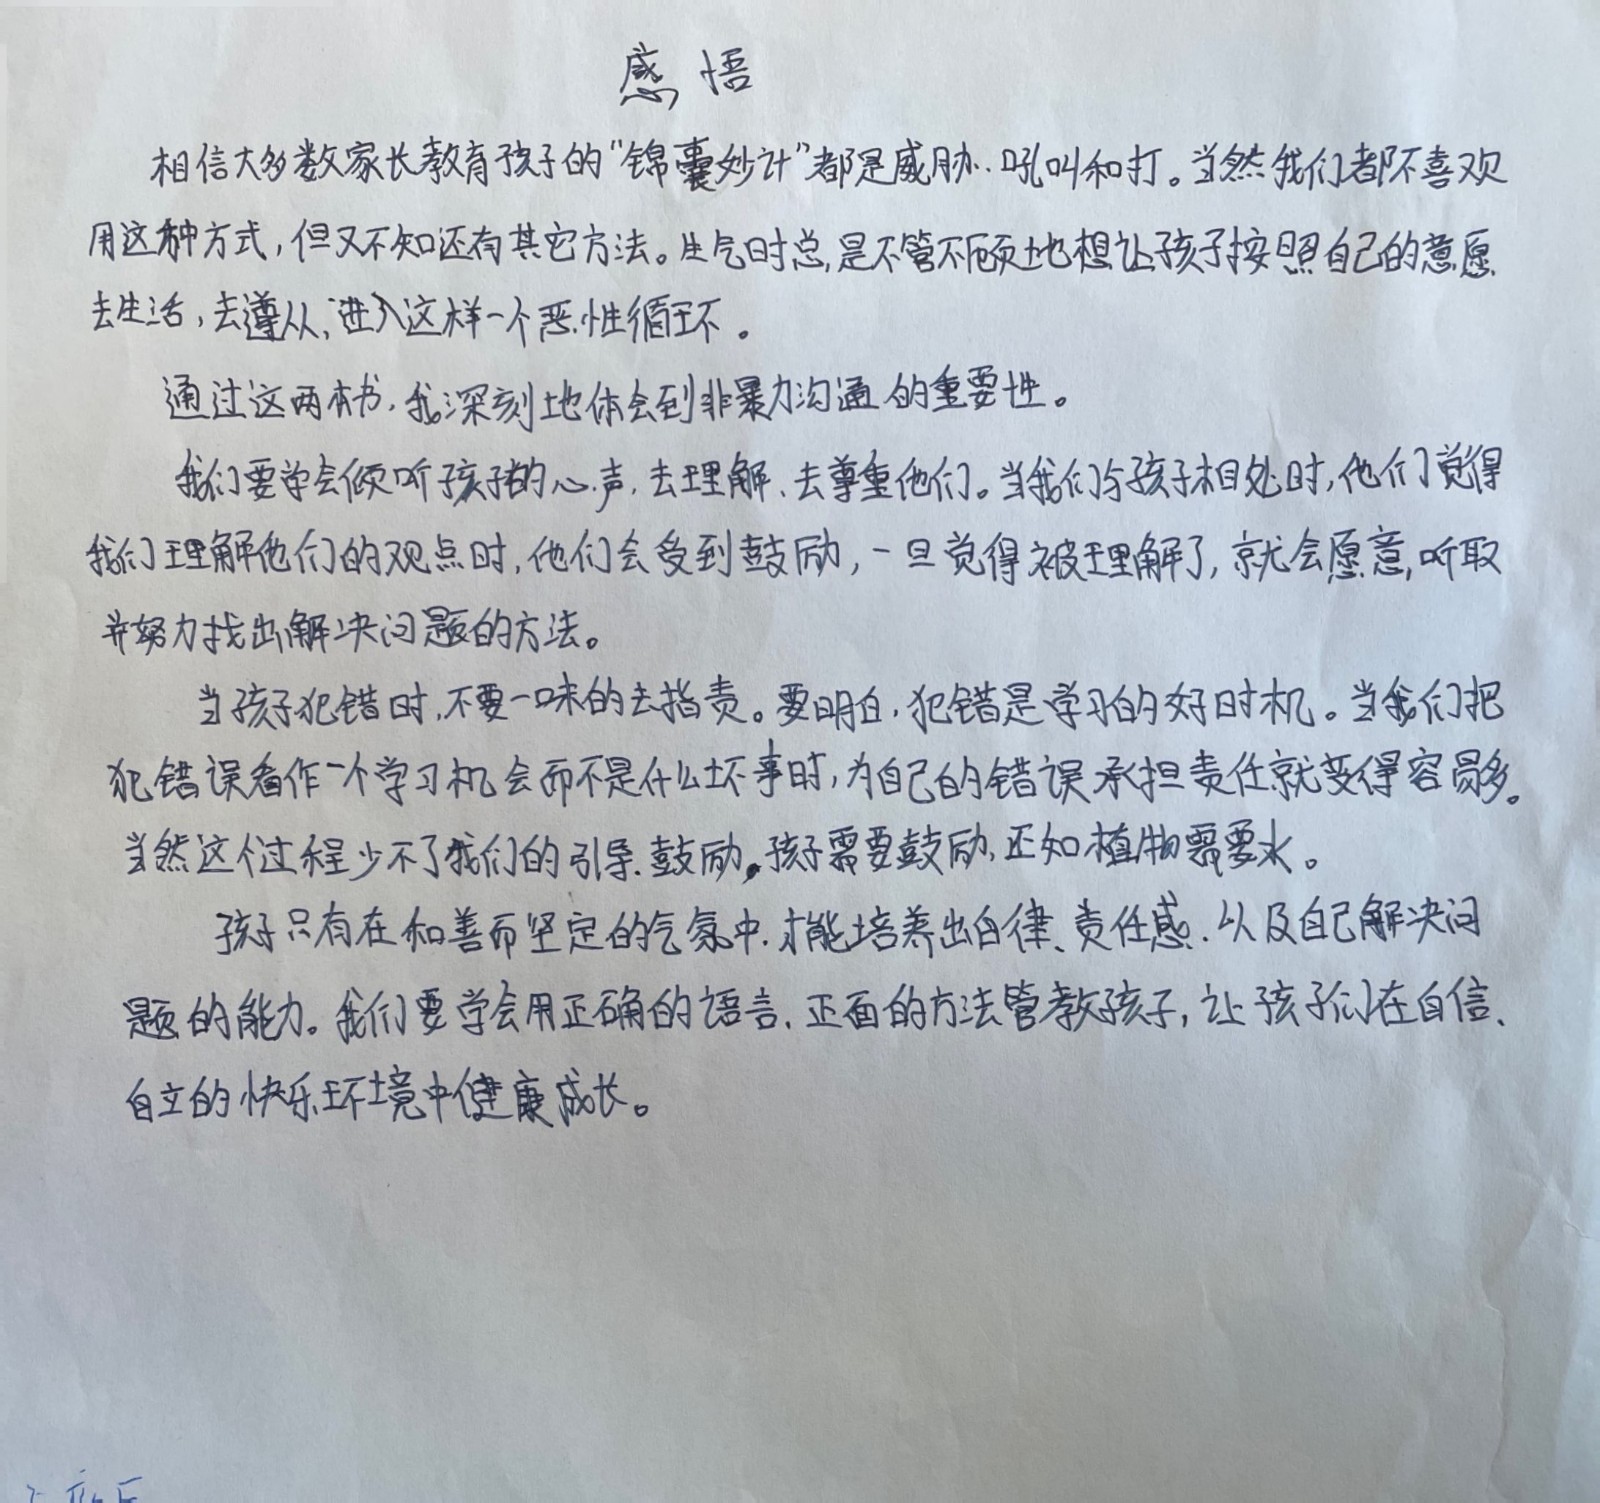 感悟
相信大多数家长教育孩子的“锦囊妙计”都是威胁、吼叫和打。当然我们都不喜欢
用这种方式，但又不知还有其它方法。生气时总是不管不顾地想让孩子按照自己的意愿
去生活，去遵从，进入这样一个恶性循环。
通过这两本书，我深刻地体会到非暴力沟通的重要性。
我们要学会倾听孩子的心声，去理解、去尊重他们。当我们与孩子相处时，他们觉得
我们理解他们的观点时，他们会受到鼓励，一旦觉得被理解了，就会愿意听取
并努力找出解决问题的方法。
当孩子犯错时，不要一味的去指责。要明白，犯错是学习的好时机。当我们把
犯错误看作一个学习机会而不是什么坏事时，为自己的错误承担责任就变得容易多。
当然这个过程少不了我们的引导、鼓励。孩子需要鼓励，正如植物需要水。
孩子只有在和善而坚定的气氛中，才能培养出自律、责任感、以及自己解决问
题的能力。我们要学会用正确的语言、正面的方法管教孩子，让孩子们在自信、
自立的快乐环境中健康成长。